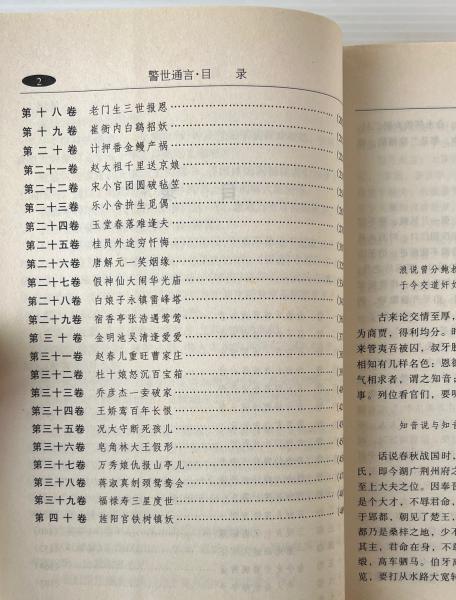 2
警世通言·目 录
第十八卷 老门生三世报恩
第十九卷 崔衙内白鹞招妖
第二十卷 计押番金鳗产祸
第二十一卷 赵太祖千里送京娘
第二十二卷 宋小官团圆破毡笠
第二十三卷 乐小舍拚生觅偶
第二十四卷 玉堂春落难逢夫
第二十五卷 桂员外途穷忏悔
第二十六卷 唐解元一笑姻缘
第二十七卷 假神仙大闹华光庙
第二十八卷 白娘子永镇雷峰塔
第二十九卷 宿香亭张浩遇莺莺
第三十卷 金明池吴清逢爱爱
第三十一卷 赵春儿重旺曹家庄
第三十二卷 杜十娘怒沉百宝箱
第三十三卷 乔彦杰一妾破家
第三十四卷 王娇鸾百年长恨
第三十五卷 况太守断死孩儿
第三十六卷 皂角林大王假形
第三十七卷 万秀娘仇报山亭儿
第三十八卷 蒋淑真刎颈鸳鸯会
第三十九卷 福禄寿三星度世
第四十卷 旌阳宫铁树镇妖
浪说曾分鲍叔
于今交道奸如
古来论交情至厚,
为商贾,得利均分。时
来管夷吾被囚,叔牙脱
相知有几样名色:恩德
气相求者,谓之知音。
事。列位看官们,要听
知音说与知音
话说春秋战国时,
氏,即今湖广荆州府之
至上大夫之位。因奉晋
是个大才,不辱君命,
于郢都,朝见了楚王,
都乃是桑梓之地,少不
其主,君命在身,不敢
缎,高车驷马。伯牙离
览,要打从水路大宽转